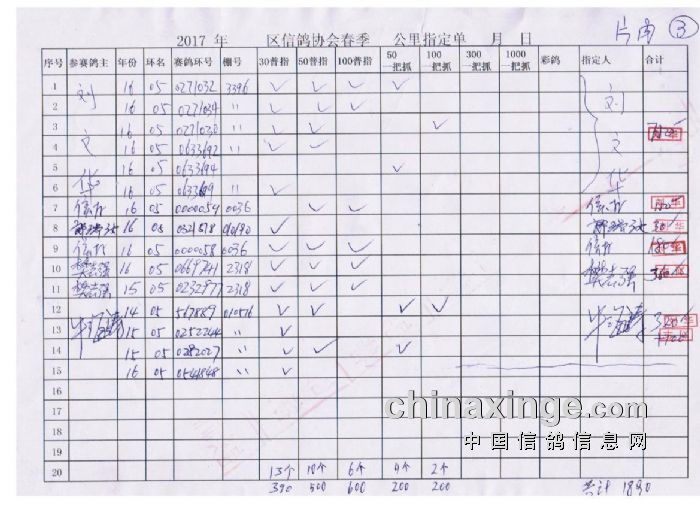 片南 ③
2017 年 区信鸽协会春季 公里指定单 月 日
序号 参赛鸽主 年份 环名 赛鸽环号 棚号 30普指 50普指 100普指 50一把抓 100一把抓 300一把抓 1000一把抓 彩鸽 指定人 合计
1 刘 16 05 0271032 3396 ✓ ✓ ✓ ✓ 刘
2 16 05 0271034 〃 ✓ ✓ ✓
3 文 16 05 0271030 〃 ✓ ✓ ✓ 文
4 16 05 0633692 〃 ✓ ✓
5 华 16 05 0633694 ✓ 华
6 16 05 〃 ✓
7 16 05 0000054 0036 ✓ ✓
8 16 05 ✓
9 16 05 0000058 0036 ✓ ✓ ✓
10 樊志强 16 05 2318 ✓ ✓ ✓ 樊志强
11 樊志强 15 05 0232977 2318 ✓ ✓ ✓
12 14 05 567887 010516 ✓ ✓ ✓ ✓
13 15 05 0252244 〃 ✓
14 15 05 0282027 〃 ✓ ✓ ✓
15 16 05 0544848 〃 ✓
16
17
18
19
20 13个 10个 6个 4个 2个
390 500 600 200 200 共计 1890
chinaxinge.com
中国信鸽信息网